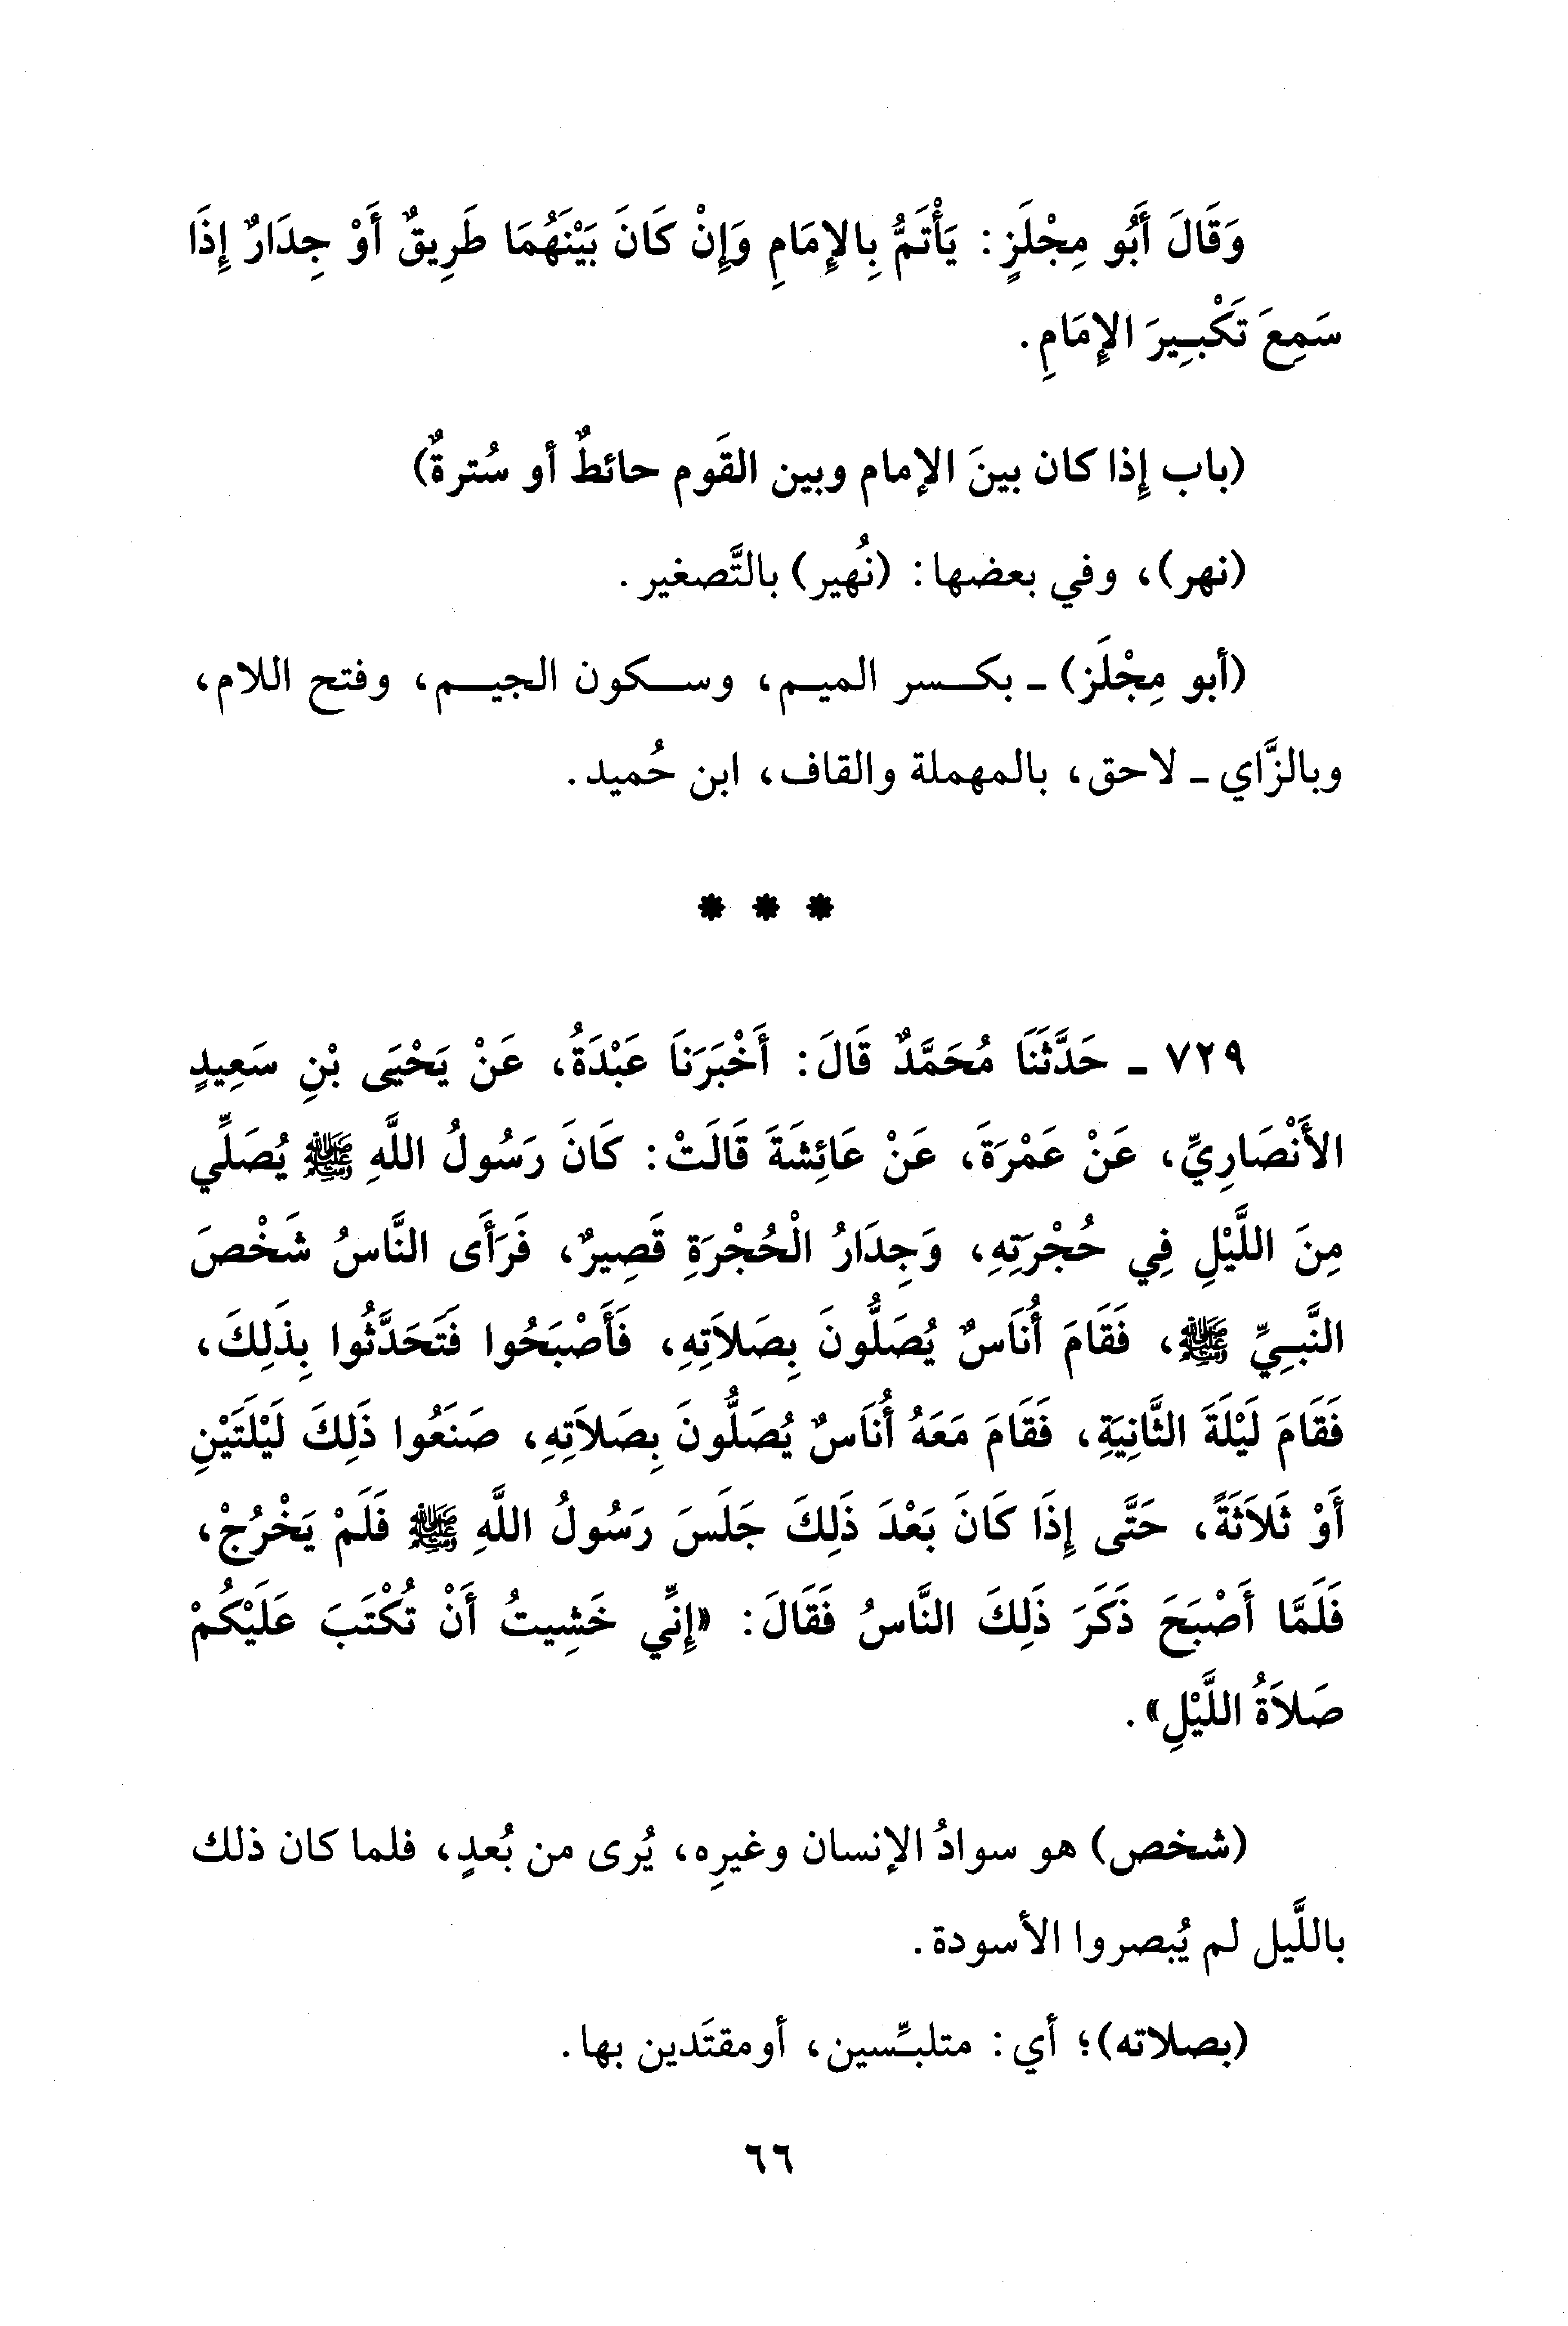 وَقَالَ أَبُو مِجْلَزٍ: يَأْتَمُّ بِالإِمَامِ وَإِنْ كَانَ بَيْنَهُمَا طَرِيقٌ أَوْ جِدَارٌ إِذَا
سَمِعَ تَكْبِيرَ الإِمَامِ.
(باب إِذا كان بينَ الإمام وبين القَوم حائطٌ أو سُترةٌ)
(نهر)، وفي بعضها: (نُهير) بالتَّصغير.
(أبو مِجْلَز) ـ بكسر الميم، وسكون الجيم، وفتح اللام،
وبالزَّاي ـ لاحق، بالمهملة والقاف، ابن حُميد.
* * *
٧٢٩ ـ حَدَّثَنَا مُحَمَّدٌ قَالَ: أَخْبَرَنَا عَبْدَةُ، عَنْ يَحْيَى بْنِ سَعِيدٍ
الأَنْصَارِيِّ، عَنْ عَمْرَةَ، عَنْ عَائِشَةَ قَالَتْ: كَانَ رَسُولُ اللَّهِ ﷺ يُصَلِّي
مِنَ اللَّيْلِ فِي حُجْرَتِهِ، وَجِدَارُ الْحُجْرَةِ قَصِيرٌ، فَرَأَى النَّاسُ شَخْصَ
النَّبِيِّ ﷺ، فَقَامَ أُنَاسٌ يُصَلُّونَ بِصَلاَتِهِ، فَأَصْبَحُوا فَتَحَدَّثُوا بِذَلِكَ،
فَقَامَ لَيْلَةَ الثَّانِيَةِ، فَقَامَ مَعَهُ أُنَاسٌ يُصَلُّونَ بِصَلاَتِهِ، صَنَعُوا ذَلِكَ لَيْلَتَيْنِ
أَوْ ثَلاَثَةً، حَتَّى إِذَا كَانَ بَعْدَ ذَلِكَ جَلَسَ رَسُولُ اللَّهِ ﷺ فَلَمْ يَخْرُجْ،
فَلَمَّا أَصْبَحَ ذَكَرَ ذَلِكَ النَّاسُ فَقَالَ: «إِنِّي خَشِيتُ أَنْ تُكْتَبَ عَلَيْكُمْ
صَلاَةُ اللَّيْلِ».
(شخص) هو سوادُ الإنسان وغيرِه، يُرى من بُعدٍ، فلما كان ذلك
باللَّيل لم يُبصروا الأسودة.
(بصلاته)؛ أي: متلبِّسين، أو مقتَدين بها.
٦٦